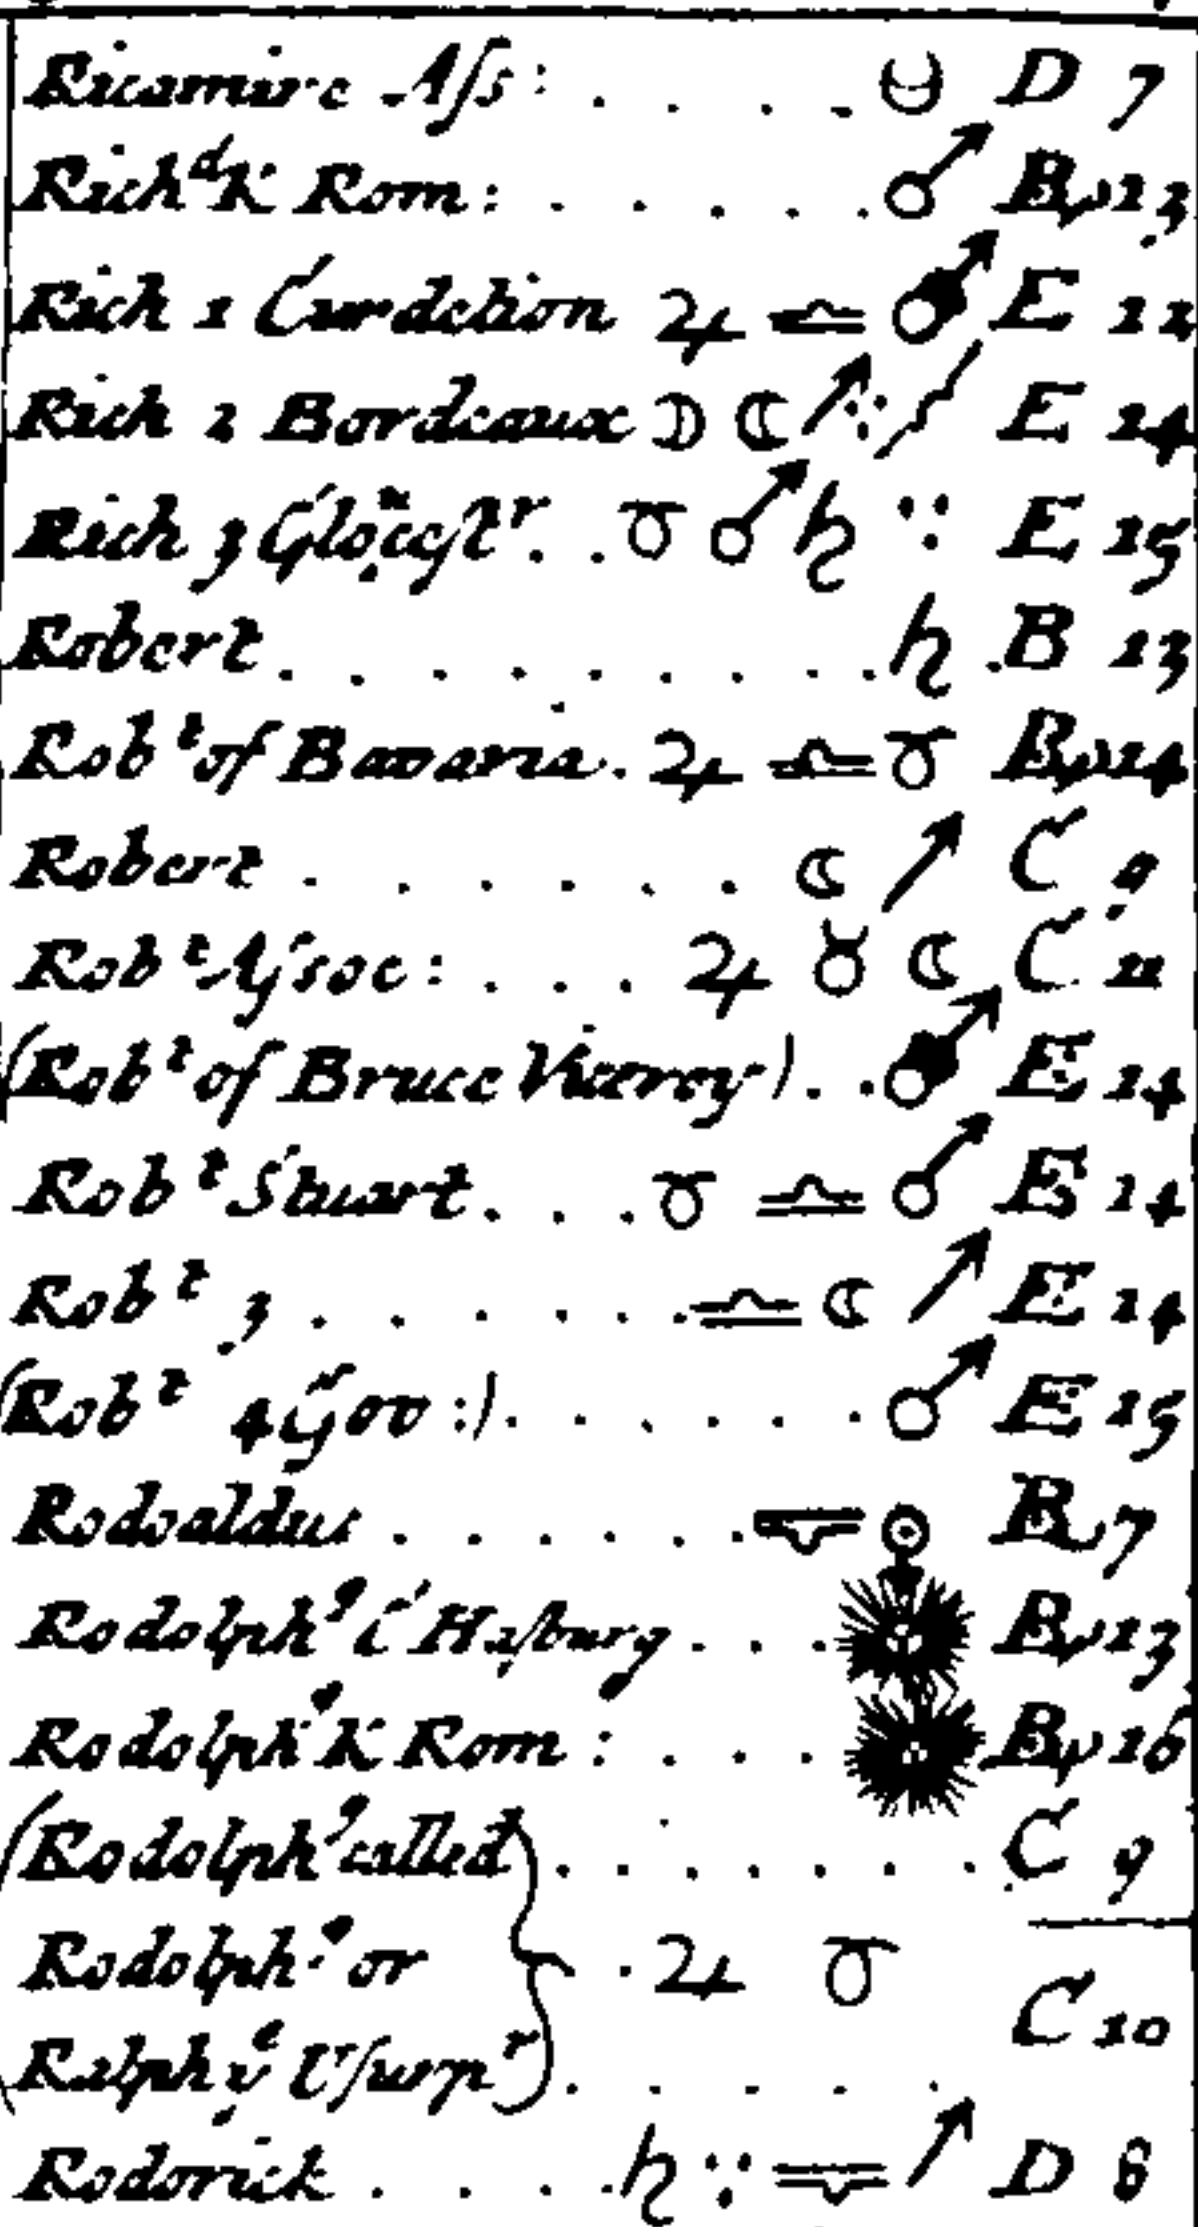 Ricomire Aſs: . . . . D 7
Rich^d K Rom: . . . . . ♂ B 13
Rich 1 Curdelion ♃ ♎ ♂ E 12
Rich 2 Bordeaux ☽ ☾ E 14
Rich 3 Glocest^r. . ♉ ♂ ♄ E 15
Robert . . . . . . . . ♄ . B 13
Rob^t of Bavaria . ♃ ♎ ♉ B 14
Robert . . . . . . ☾ ↗ C 9
Rob^t Aſsoc: . . . ♃ ♉ ☾ C 11
(Rob^t of Bruce Viceroy) . . ♂ E 14
Rob^t Stuart . . . ♉ ♎ ♂ E 14
Rob^t 3 . . . . . . ♎ ☾ ↗ E 14
(Rob^t 4 Gov:) . . . . . ♂ E 15
Rodoaldus . . . . . ☉ B 7
Rodolph^9 C Hasburg . . . B 13
Rodolph^9 K Rom: . . . B 16
(Rodolph^9 called . . . . . . C 9
Rodolph^9 or . ♃ ♉ C 10
Ralph y^e Uſurp^r) . . . . .
Rodorick . . . . ♄ ↗ D 8